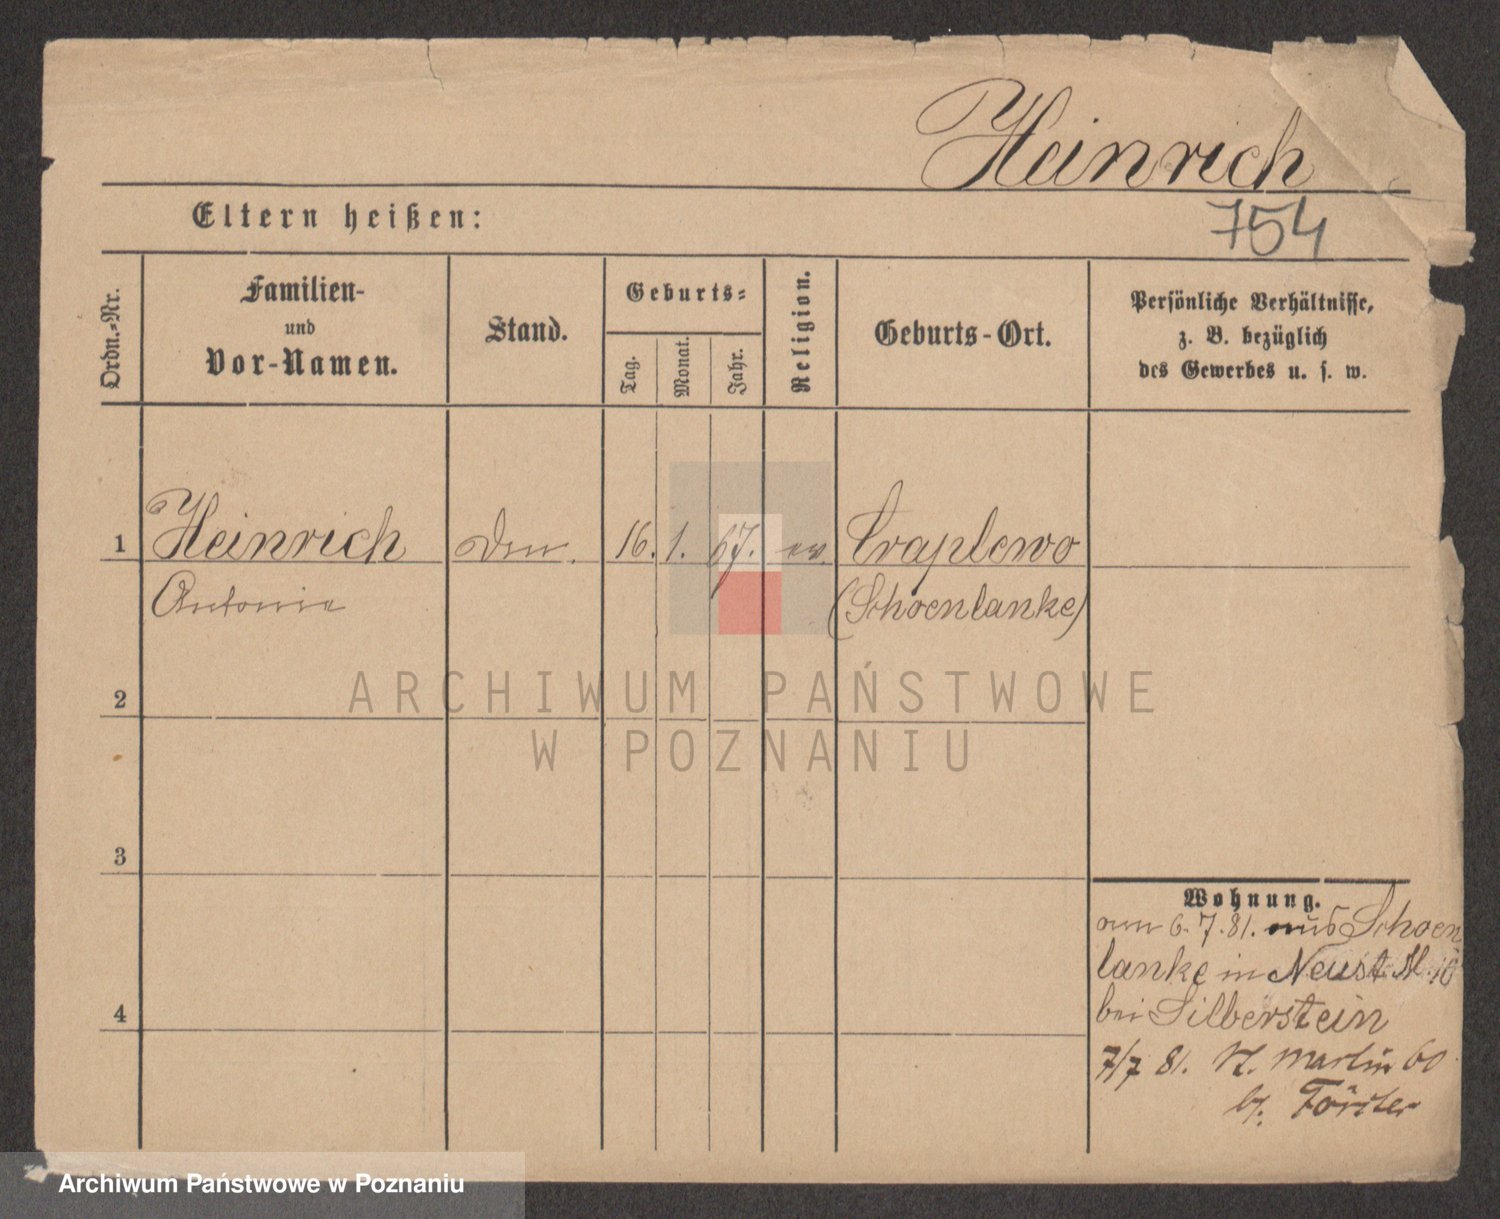 Heinrich
Eltern heißen:
754
Ordn.-Nr.
Familien-
und
Vor-Namen.
Stand.
Geburts-
Tag.
Monat.
Jahr.
Religion.
Geburts-Ort.
Persönliche Verhältnisse,
z. B. bezüglich
des Gewerbes u. s. w.
1 Heinrich 16. 1. 67. ev. Craplewo
Antonie (Schoenlanke)
ARCHIWUM PAŃSTWOWE
W POZNANIU
2
3
4
Wohnung.
am 6.7.81. aus Schoen
lanke in Neust. M. 10
bei Silberstein
7/7 81. St. Martin 60
b. Förster
Archiwum Państwowe w Poznaniu